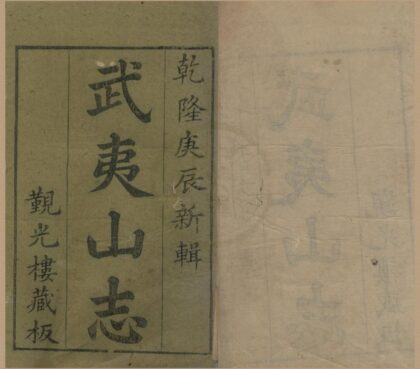 乾隆庚辰新輯
武夷山志
觀光樓藏板